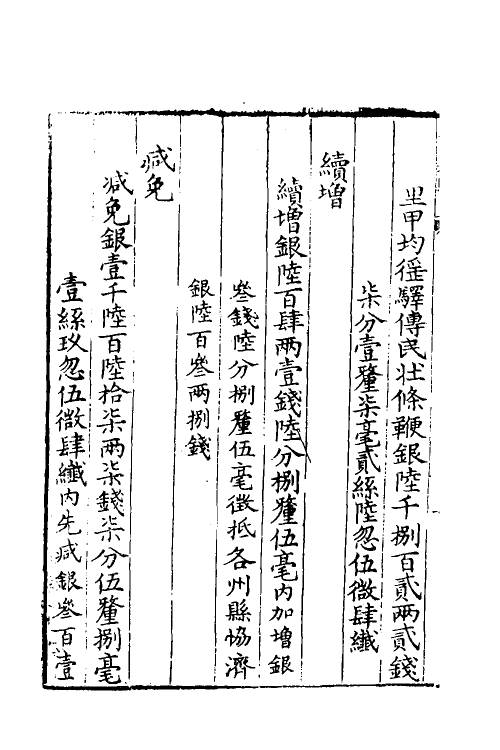 里甲均徭驛傳民壯條鞭銀陸千捌百貳兩貳錢
柒分壹釐柒毫貳絲陸忽伍微肆纖
續增
續增銀陸百肆兩壹錢陸分捌釐伍毫內加增銀
叁錢陸分捌釐伍毫徵抵各州縣恊濟
銀陸百叁兩捌錢
减免
减免銀壹千陸百陸拾柒兩柒錢柒分伍釐捌毫
壹絲玖忽伍微肆纖內先减銀叁百壹